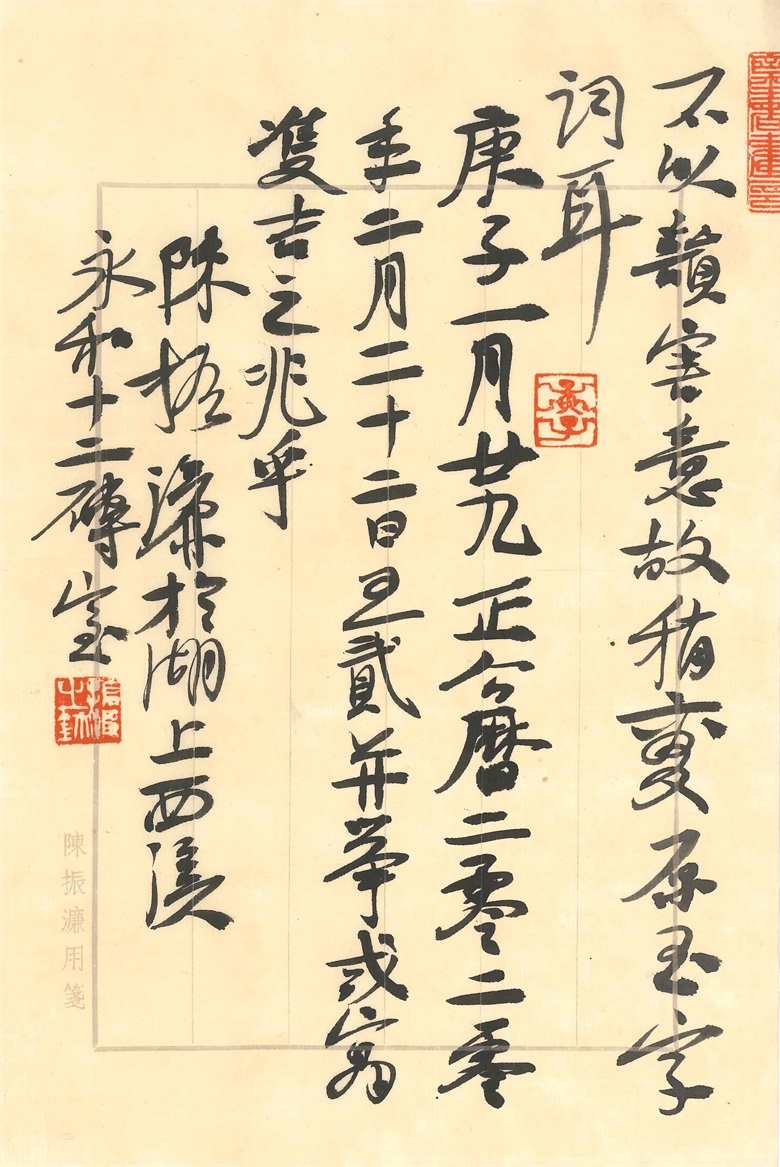 不以韻害意故稍變原玉字
詞耳
庚子
庚子一月廿九正公曆二零二零
年二月二十二日五貳并举或寓
雙吉之兆乎
陳振濂於湖上西溪
永和十二磚室
陳振濂用箋